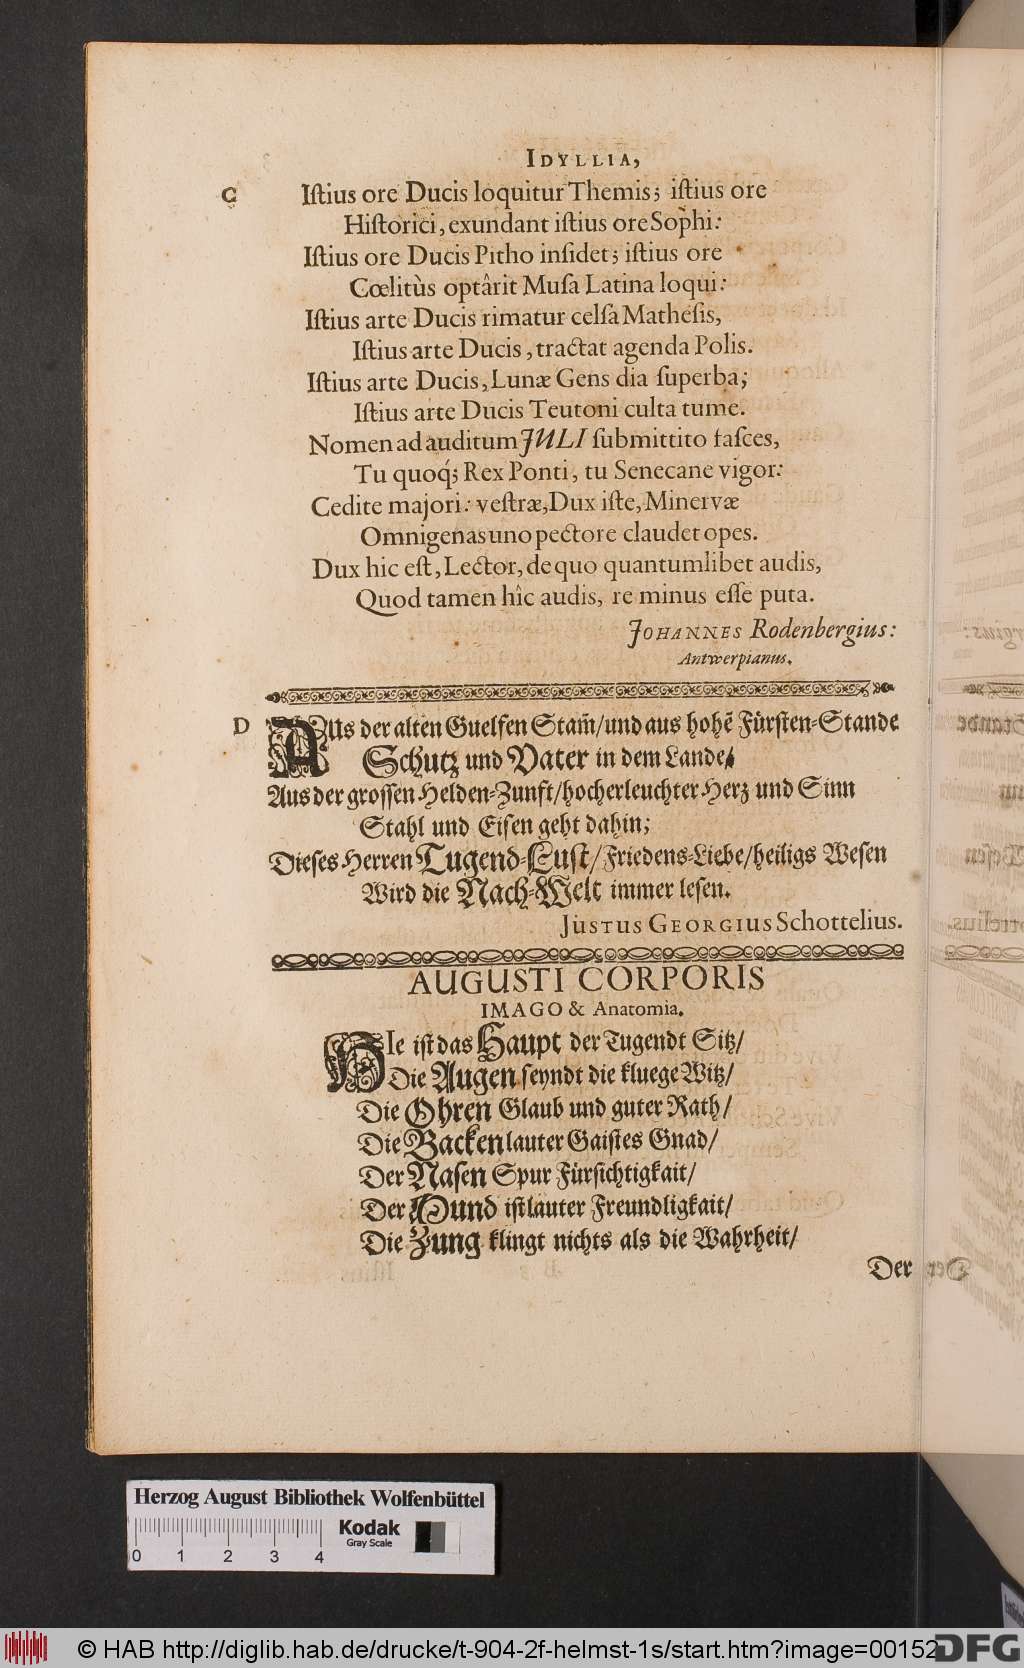 IDYLLIA,
C Iſtius ore Ducis loquitur Themis; iſtius ore
Hiſtorici, exundant iſtius ore Sophi:
Iſtius ore Ducis Pitho inſidet; iſtius ore
Cœlitùs optârit Muſa Latina loqui:
Iſtius arte Ducis rimatur celſa Matheſis,
Iſtius arte Ducis, tractat agenda Polis.
Iſtius arte Ducis, Lunæ Gens dia ſuperba;
Iſtius arte Ducis Teutoni culta tume.
Nomen ad auditum JULI ſubmittito faſces,
Tu quoq́; Rex Ponti, tu Senecane vigor:
Cedite majori: veſtræ, Dux iſte, Minervæ
Omnigenas uno pectore claudet opes.
Dux hic eſt, Lector, de quo quantumlibet audis,
Quod tamen hîc audis, re minus eſſe puta.
JOHANNES Rodenbergius:
Antwerpianus.
D AUs der alten Guelfen Stam̃/ und aus hohẽ Fürſten-Stande
Schutz und Vater in dem Lande/
Aus der groſſen Helden-Zunft/ hocherleuchter Herz und Sinn
Stahl und Eiſen geht dahin;
Dieſes Herren Tugend-Luſt/ Friedens-Liebe/ heiligs Weſen
Wird die Nach-Welt immer leſen.
JUSTUS GEORGIUS Schottelius.
AUGUSTI CORPORIS
IMAGO & Anatomia.
HIe iſt das Haupt der Tugendt Sitz/
Die Augen ſeyndt die kluege Witz/
Die Ohren Glaub und guter Rath/
Die Backen lauter Gaiſtes Gnad/
Der Naſen Spur Fürſichtigkait/
Der Mund iſt lauter Freundligkait/
Die Zung klingt nichts als die Wahrheit/
Der
Herzog August Bibliothek Wolfenbüttel
Kodak
Gray Scale
0 1 2 3 4
© HAB http://diglib.hab.de/drucke/t-904-2f-helmst-1s/start.htm?image=00152
DFG